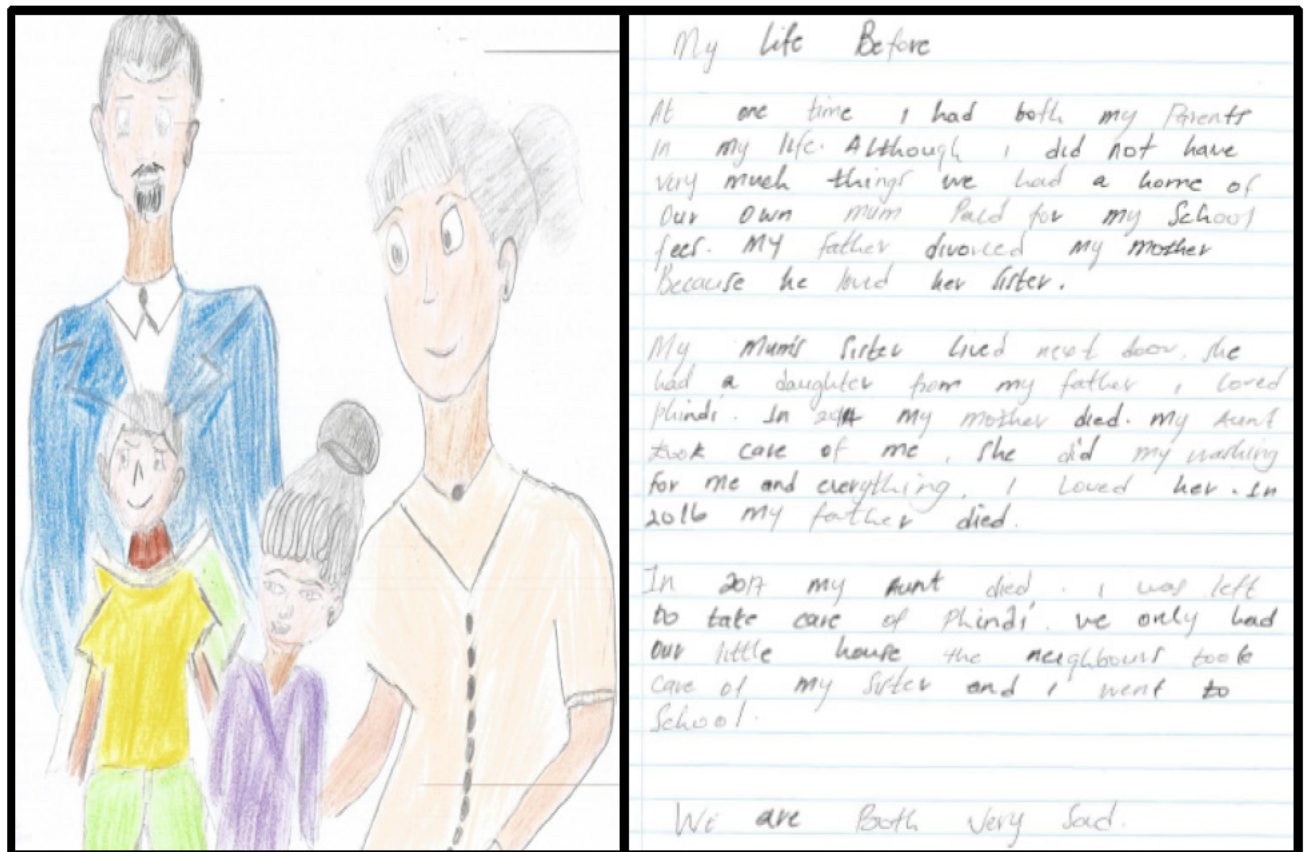 My Life Before
At one time I had both my Parents
in my life. Although i did not have
very much things we had a home of
our own mum Paid for my School
fees. MY father divorced my mother
Because he loved her sister.
My Mum's Sister lived next door, she
had a daughter from my father, i loved
phindi. In 2014 my mother died. my Aunt
took care of me, she did my washing
for me and everything, I Loved her. In
2016 my father died.
In 2017 my Aunt died. I was left
to take care of Phindi. we only had
our little house the neighbours took
care of my Sister and i went to
School.
We are Both very Sad.